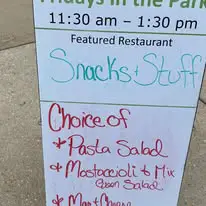 Fridays in the Park
11:30 am – 1:30 pm
Featured Restaurant
Snacks & Stuff
Choice of
* Pasta Salad
* Mostaccioli & Mix
Green Salad
* Mac & Cheese